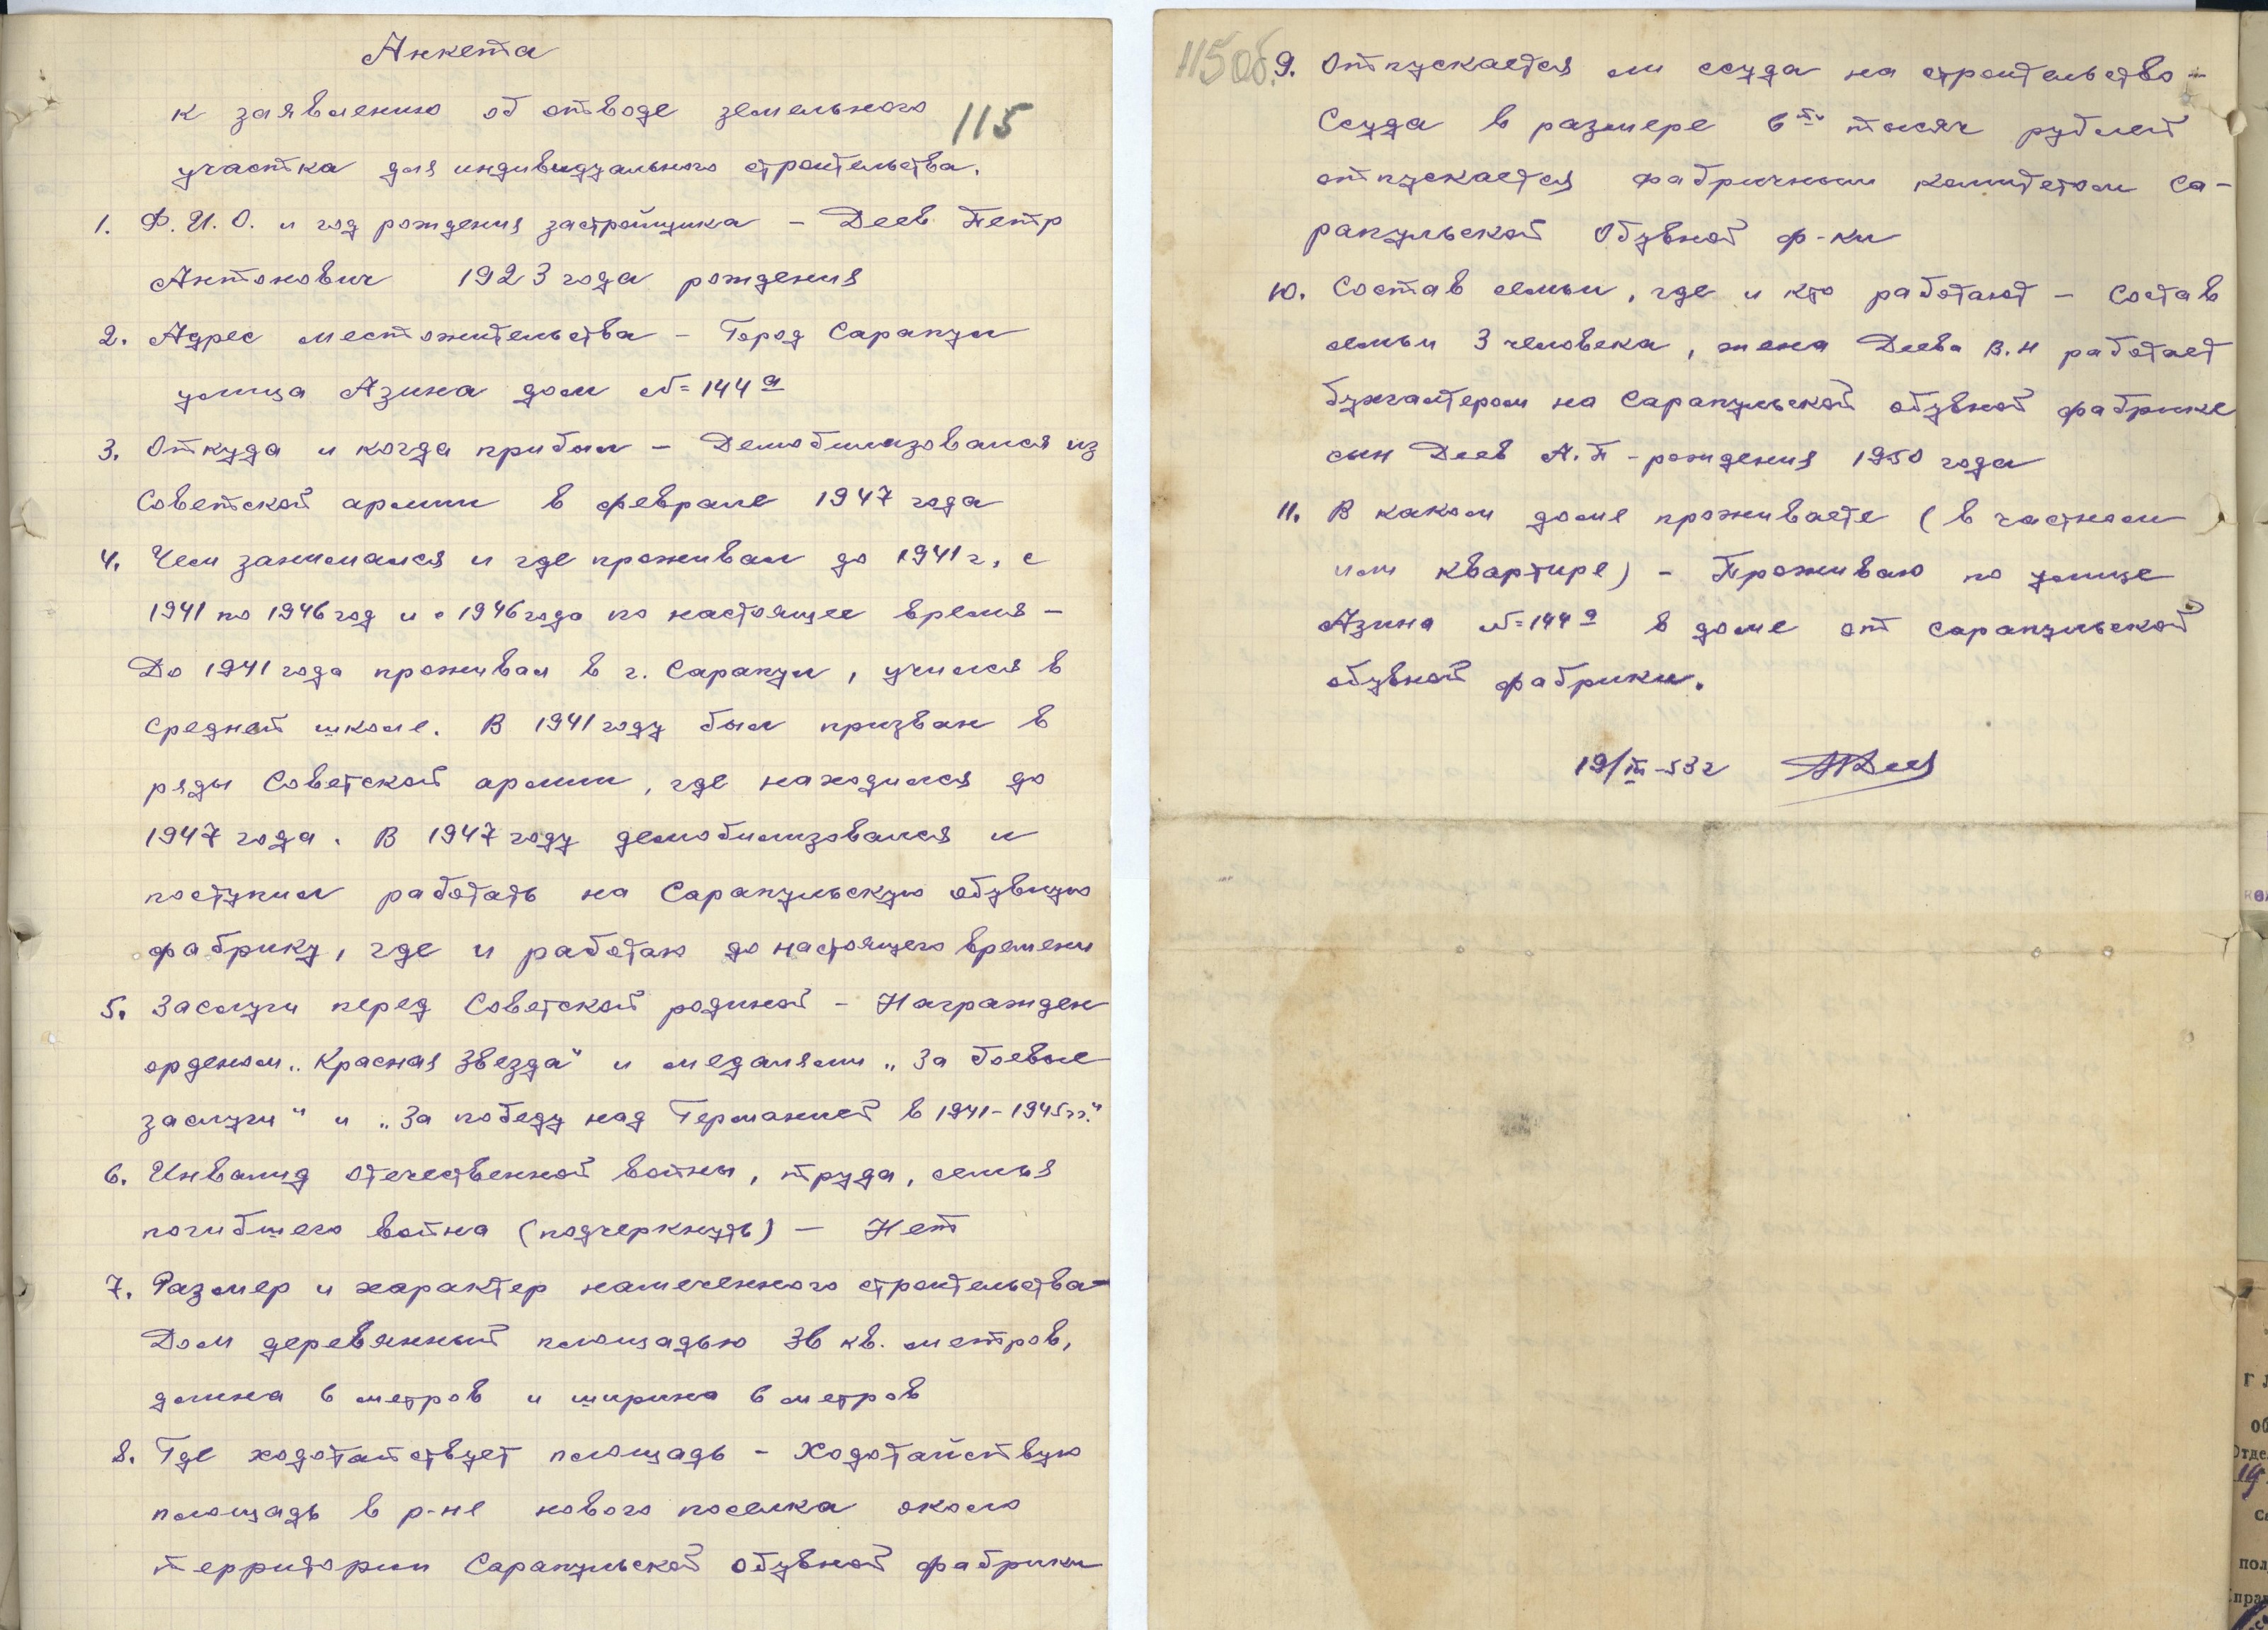 Анкета
к заявлению об отводе земельного
115
участка для индивидуального строительства.
1. Ф.И.О. и год рождения застройщика – Деев Петр
Антонович 1923 года рождения
2. Адрес местожительства – Город Сарапул
улица Азина дом №=144а
3. Откуда и когда прибыл – Демобилизовался из
Советской армии в феврале 1947 года
4. Чем занимался и где проживал до 1941 г., с
1941 по 1946 год и с 1946 года по настоящее время –
До 1941 года проживал в г. Сарапул, учился в
средней школе. В 1941 году был призван в
ряды Советской армии, где находился до
1947 года. В 1947 году демобилизовался и
поступил работать на Сарапульскую обувную
фабрику, где и работаю до настоящего времени
5. Заслуги перед Советской родиной – Награжден
орденом „Красная Звезда" и медалями „За боевые
заслуги" и „За победу над Германией в 1941–1945гг."
6. Инвалид отечественной войны, труда, семья
погибшего война (подчеркнуть) – Нет
7. Размер и характер намеченного строительства –
Дом деревянный площадью 36 кв. метров,
длина 6 метров и ширина 6 метров
8. Где ходотайствует площадь – Ходотайствую
площадь в р-не нового поселка около
территории Сарапульской обувной фабрики
115об.
9. Отпускается ли ссуда на строительство –
Ссуда в размере 6ти тысяч рублей
отпускается фабричным комитетом Са-
рапульской Обувной ф-ки
10. Состав семьи, где и кто работают – Состав
семьи 3 человека, жена Деева В.Н работает
бухгалтером на Сарапульской обувной фабрике
сын Деев А.П – рождения 1950 года
11. В каком доме проживаете (в частном
или квартире) – Проживаю по улице
Азина №=144а в доме от сарапульской
обувной фабрики.
19/III-53г ПДеев